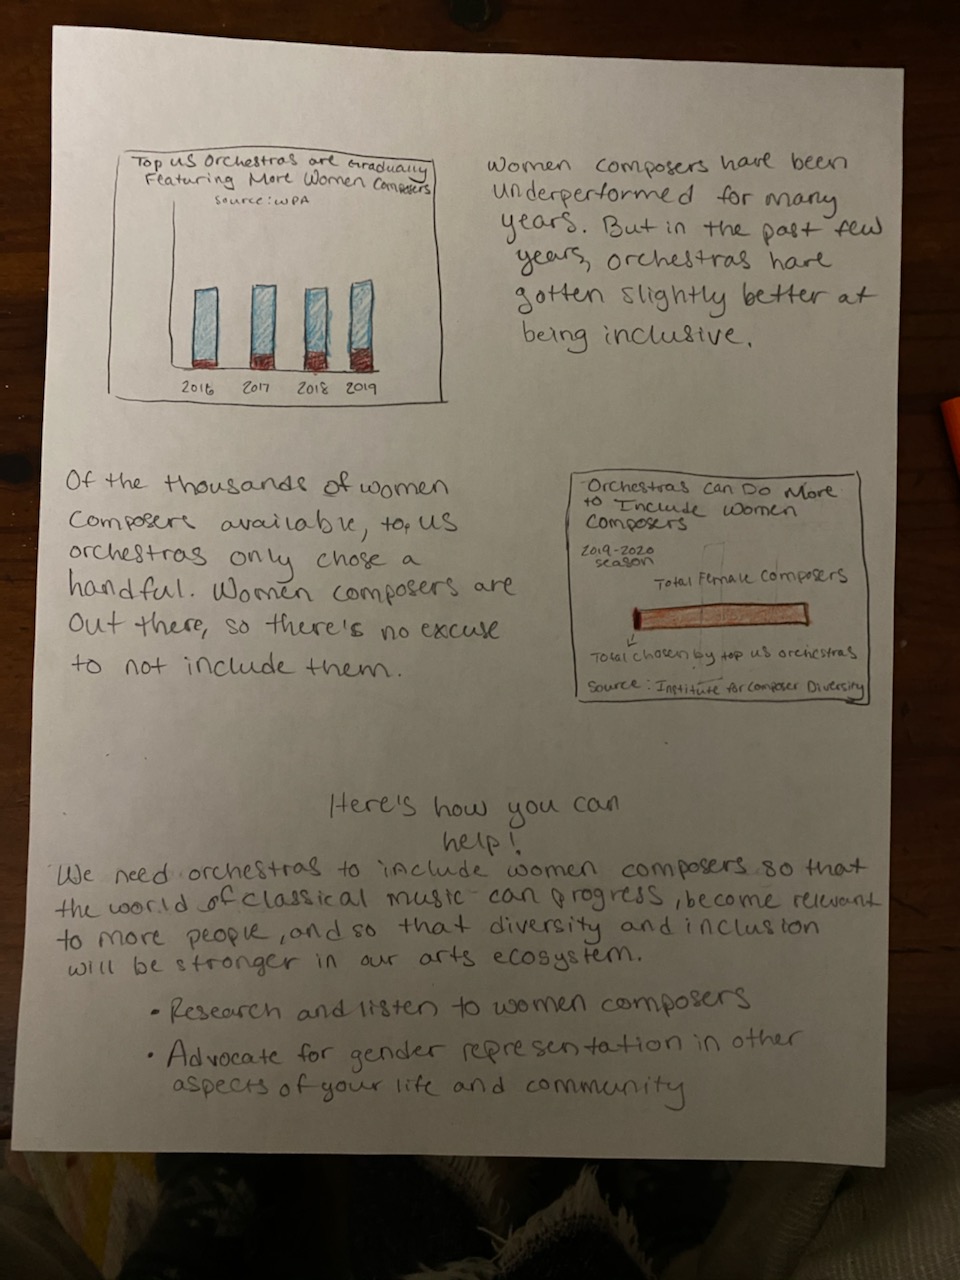 Top US Orchestras are Gradually
Featuring More Women Composers
Source: WPA
2016 2017 2018 2019
Women composers have been
underperformed for many
years. But in the past few
years, orchestras have
gotten slightly better at
being inclusive.
Of the thousands of women
composers available, top US
orchestras only chose a
handful. Women composers are
out there, so there's no excuse
to not include them.
Orchestras Can Do More
to Include Women
Composers
2019-2020
season
Total Female Composers
Total chosen by top US orchestras
Source: Institute for Composer Diversity
Here's how you can
help!
We need orchestras to include women composers so that
the world of classical music can progress, become relevant
to more people, and so that diversity and inclusion
will be stronger in our arts ecosystem.
• Research and listen to women composers
• Advocate for gender representation in other
aspects of your life and community